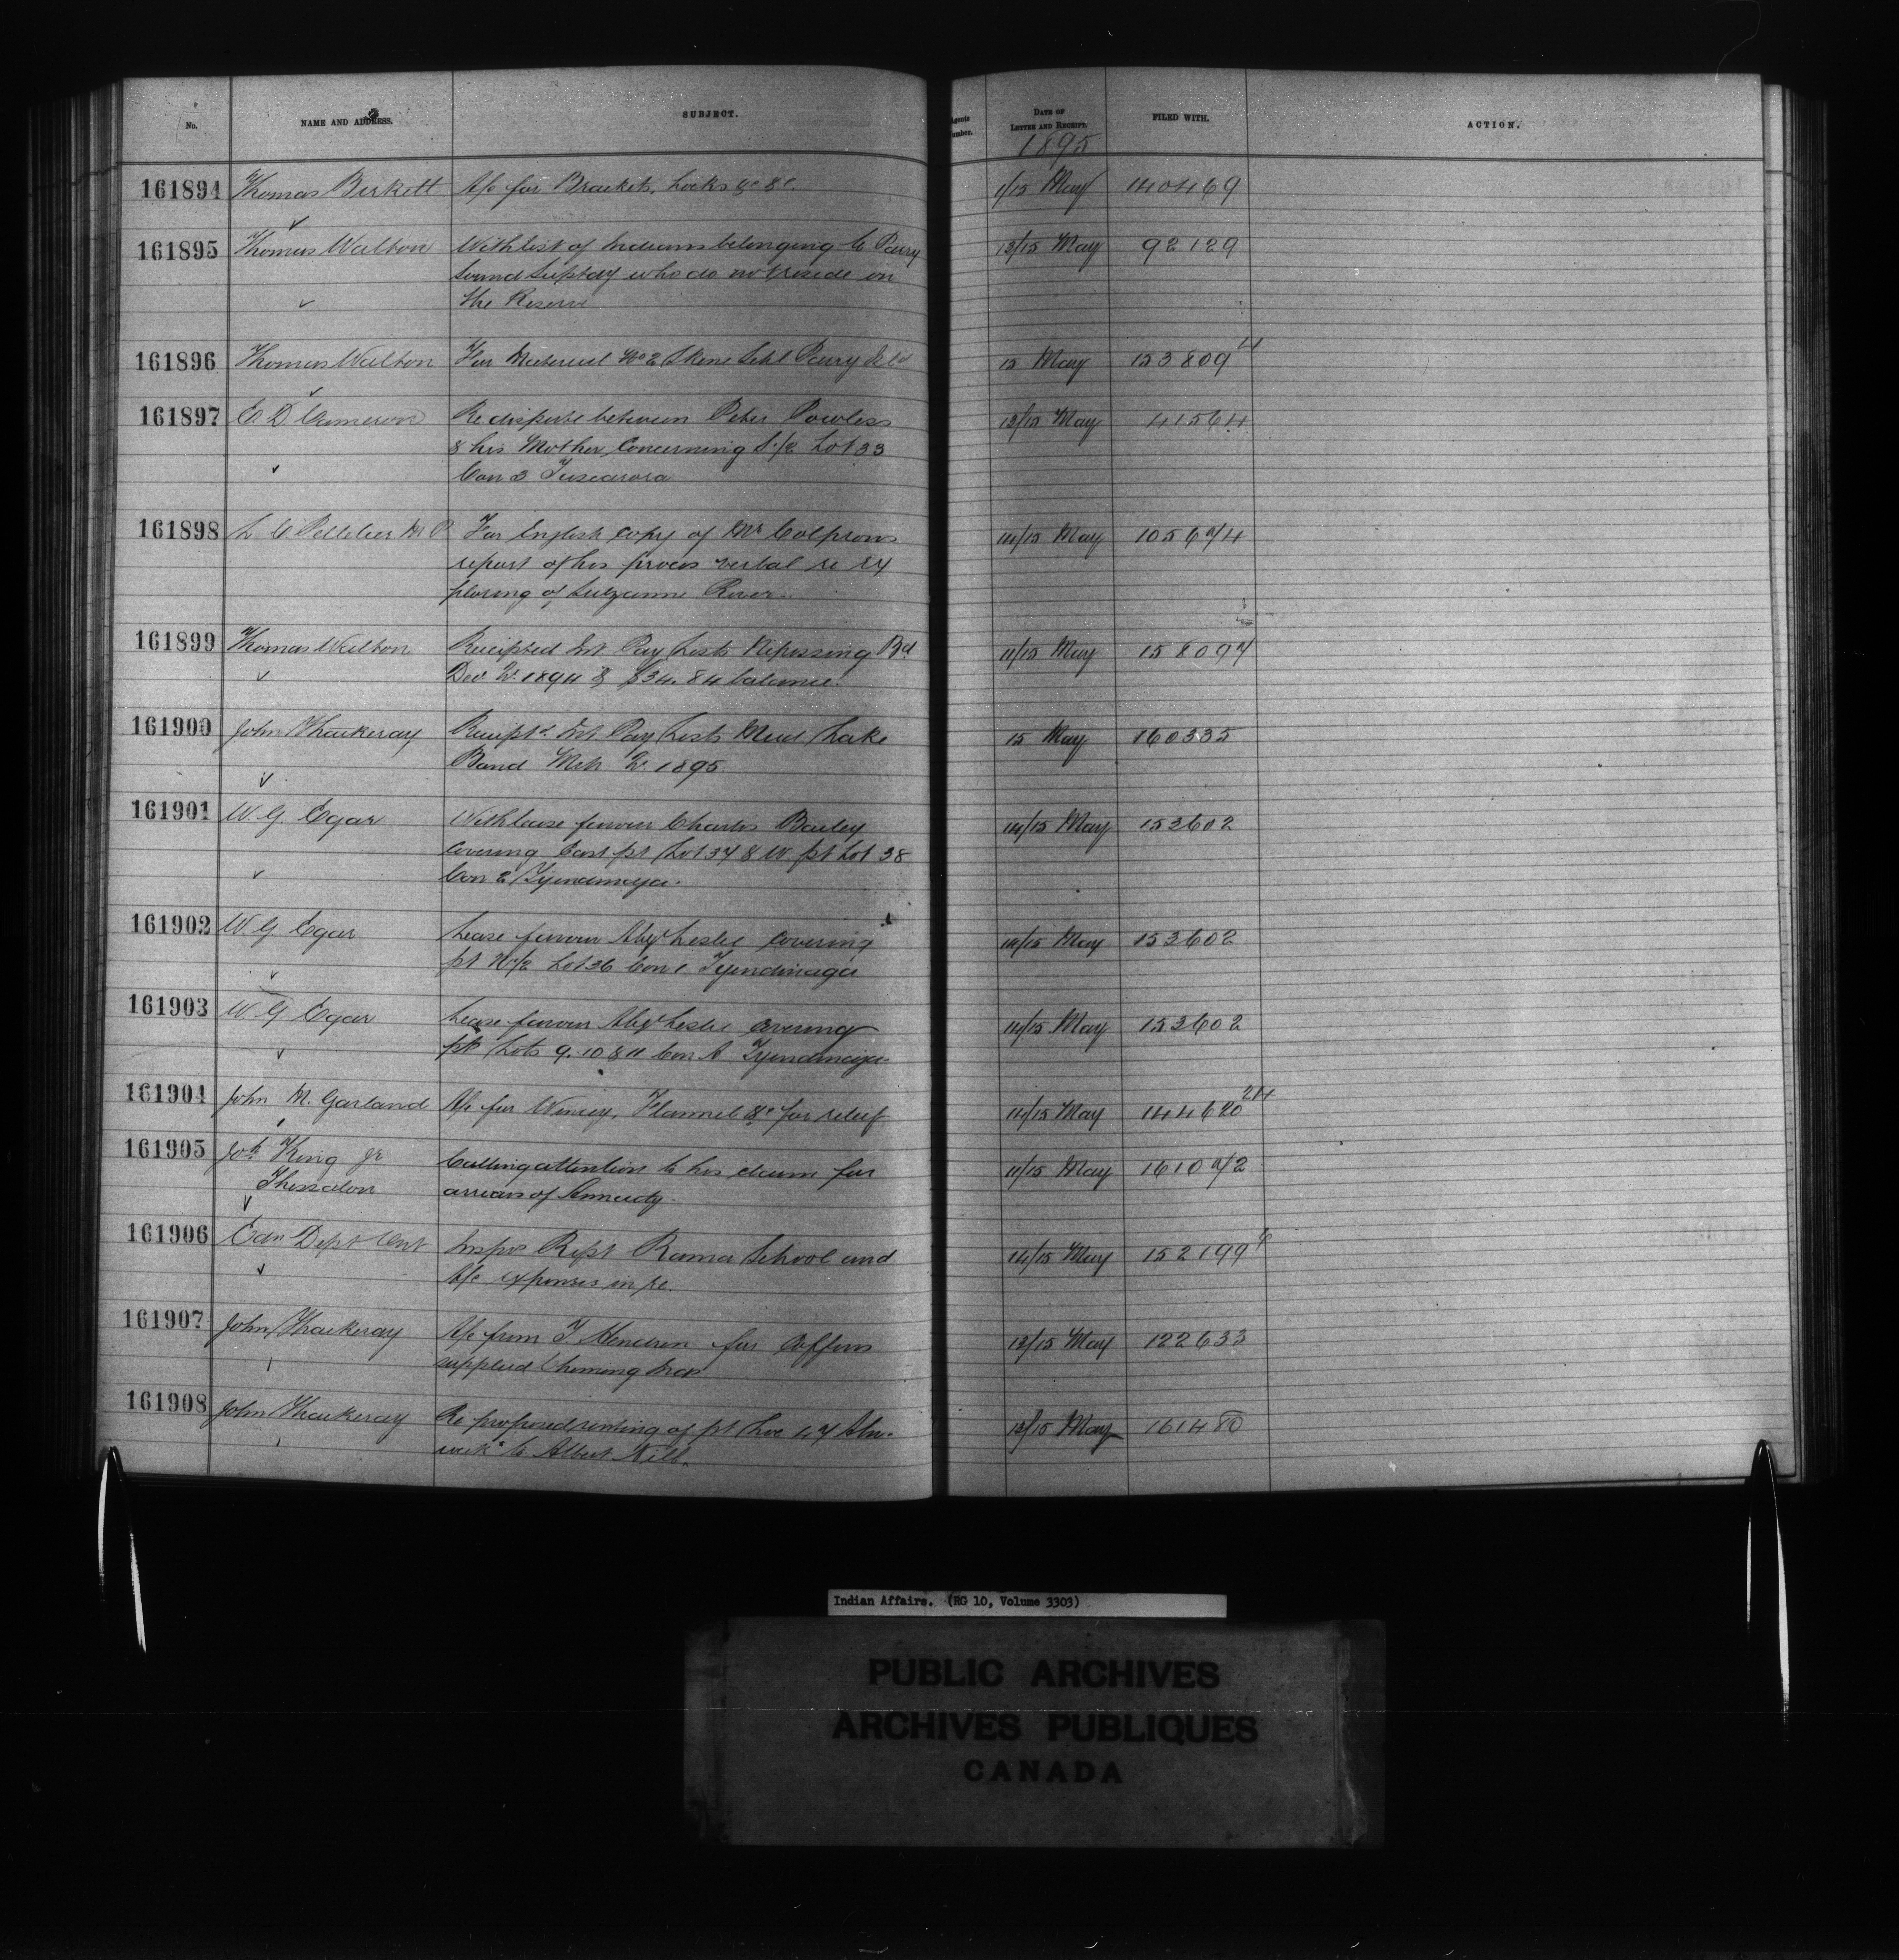 No. NAME AND ADDRESS. SUBJECT. Agents Number. DATE OF LETTER AND RECEIPT. FILED WITH. ACTION.
1895
161894 Thomas Birkett A/c for Brackets, Locks &c &c. 1/15 May 140469
161895 Thomas Walton With list of Indians belonging to Parry 13/15 May 92129
Sound Suptcy who do not reside on
the Reserve
161896 Thomas Walton For Material No 2 Skene Schl Parry Isld 15 May 153809 4
161897 E. D. Cameron Re dispute between Peter Powless 13/15 May 41564
& his Mother, Concerning S. 1/2 Lot 33
Con 3 Tuscarora
161898 L C Pelletier M P. For English copy of Mr Colprons 14/15 May 105674
report of his proces verbal re ex
ploring of River.
161899 Thomas Walton Receipted Int Pay Lists Nipissing Bd 11/15 May 158097
Dec Qr. 1894 & $34.84 balance.
161900 John Thackeray Receiptd Int Pay Lists Mud Lake 15 May 160335
Band Mch Qr. 1895
161901 W. G. Egar With lease favour Charles Bailey 14/15 May 153602
covering East pt Lot 37 & W pt Lot 38
Con 2 Tyendinaga.
161902 W G Egar Lease favour Alexr Leslie covering 14/15 May 153602
pt N 1/2 Lot 36 Con 1 Tyendinaga
161903 W. G Egar Lease favour Alexr Leslie covering 14/15 May 153602
pts Lots 9. 10 & 11 Con A Tyendinaga
161904 John M. Garland A/c for Wincey, Flannel &c for relief 14/15 May 144620 24
161905 Joh King Jr Calling attention to his claim for 11/15 May 161072
Thessalon arrears of Annuity.
161906 Edn Dept Ont Inspn Rept Rama School and 14/15 May 152199 6
A/c expenses in re.
161907 John Thackeray A/c from T Hendren for Coffins 13/15 May 122633
supplied Inds
161908 John Thackeray Re proposed renting of pt Lot 47 Aln- 13/15 May 161480
wick to Albert Kilb.
Indian Affairs. (RG 10, Volume 3303)
PUBLIC ARCHIVES
ARCHIVES PUBLIQUES
CANADA